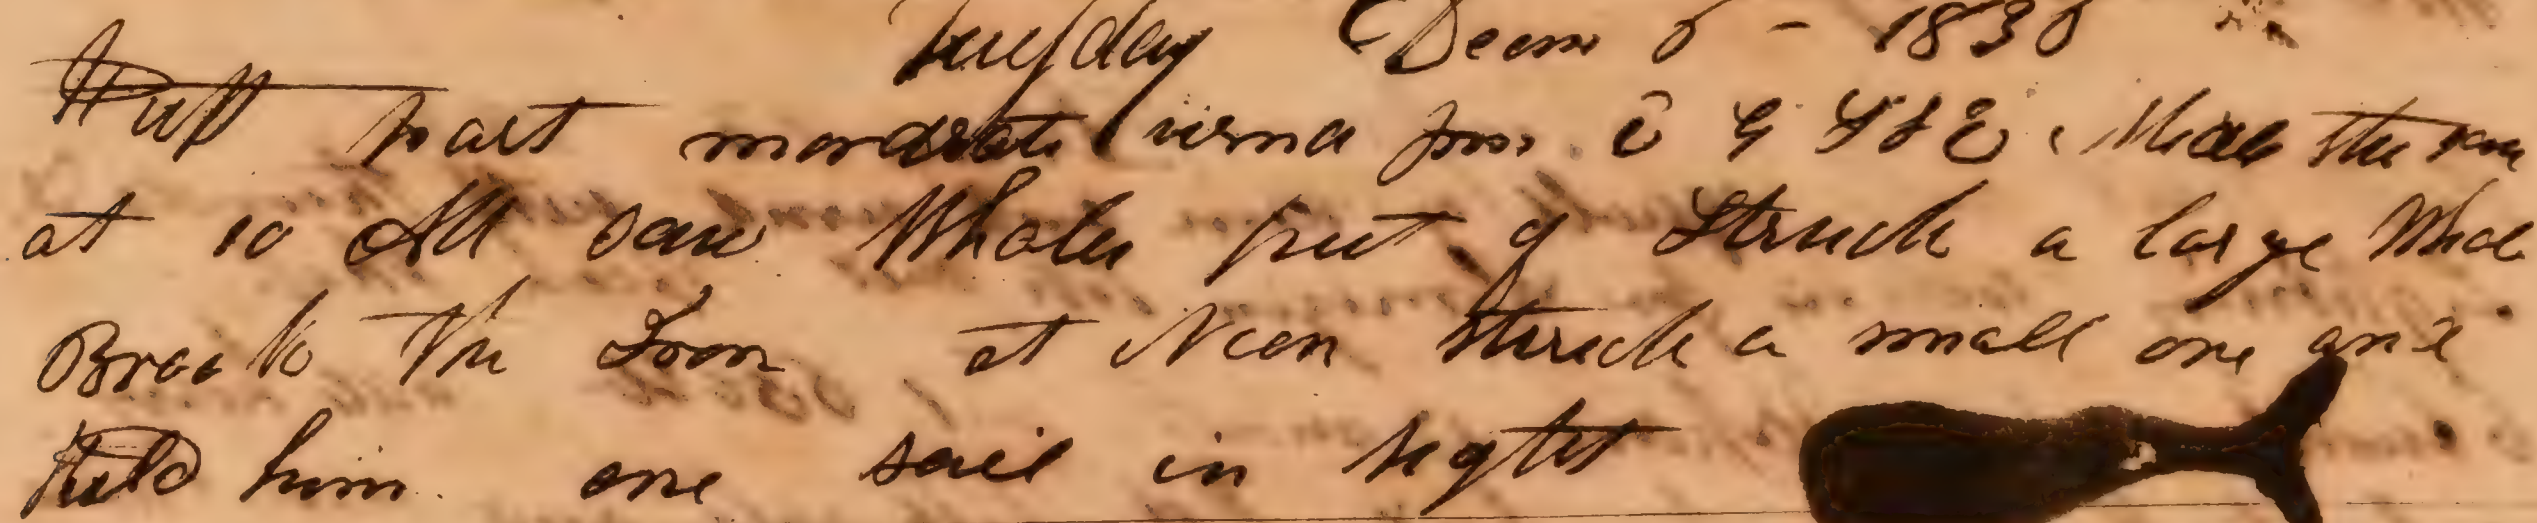 Tuesday Decm 6 - 1836
Furst part mordrate wind from E & SSE Midle the same
at 10 AM saw Whales put of Struck a large Whale
Broak the Iron at Noon struck a small one and
kild him one sail in sight